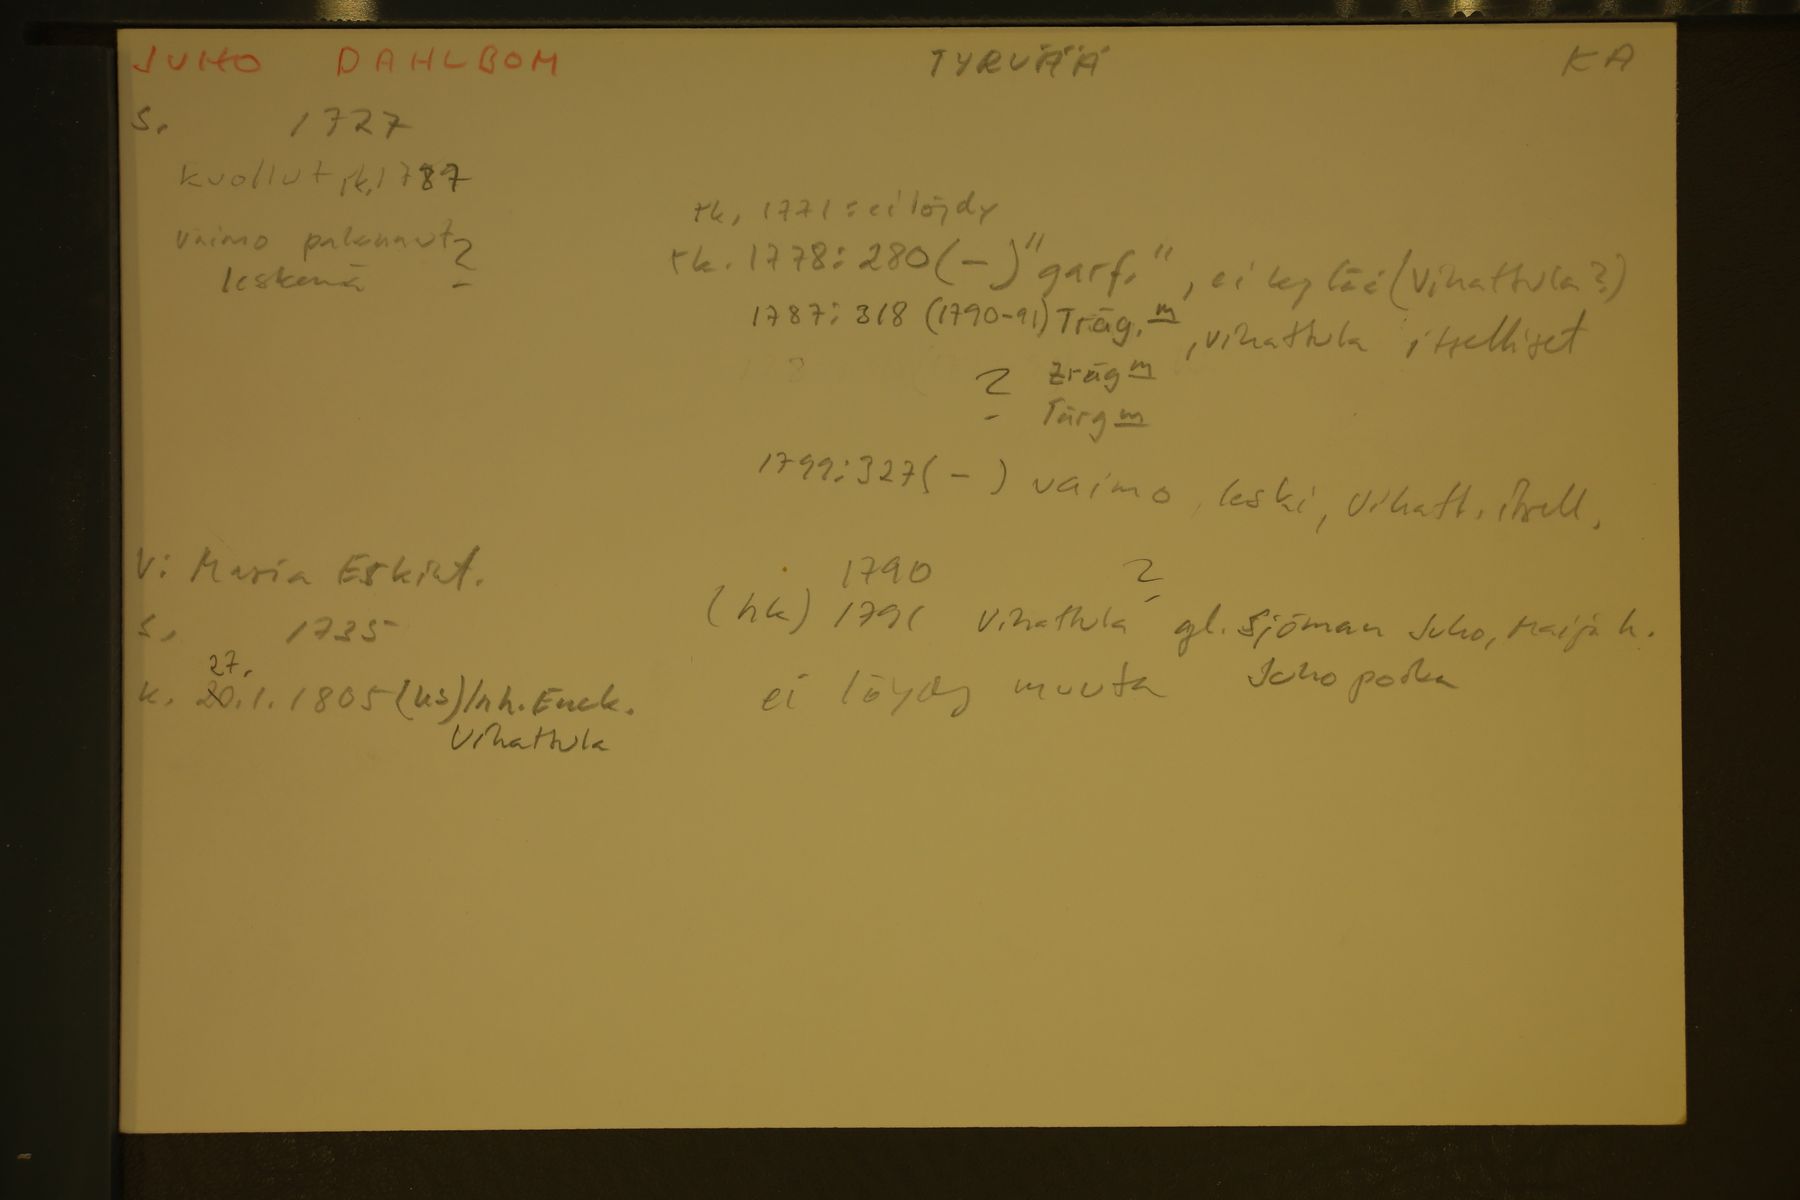 JUHO DAHLBOM TYRVÄÄ KA
s. 1727
kuollut rk. 1787
vaimo palannut ?
leskenä
rk. 1771: ei löydy
rk. 1778: 280 (-) "garf.", ei kylää (Vihattula?)
1787: 318 (1790-91) Träg. m, Vihattula itselliset
? zräg m
Tärg m
1799: 327 (-) vaimo, leski, Vihatt. itsell.
V: Maria Eskint.
s. 1735
k. 27. 20.1.1805 (ks) Inh. Enck.
Vihattula
1790 ?
(hk) 1791 Vihattula gl. Sjöman Juho, Maija h.
Juho poika
ei löydy muuta